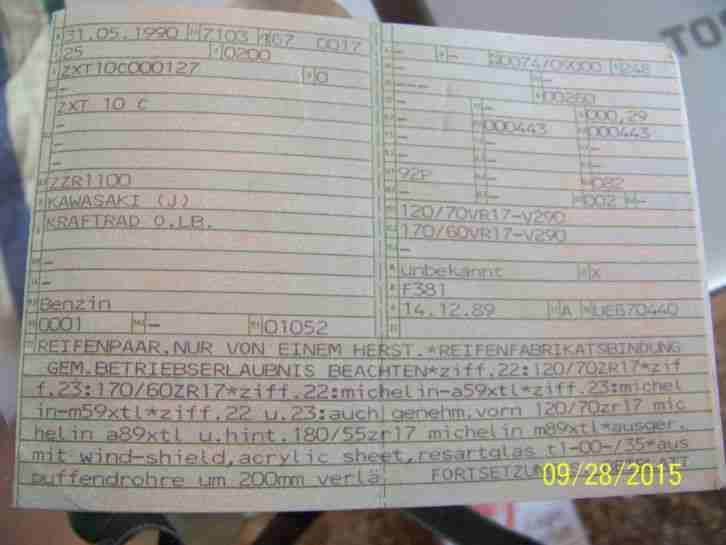 31.05.1990 7103 167 0017
25 0200
ZXT10C000127 0
-
ZXT 10 C
-
-
-
ZZR1100
KAWASAKI (J)
KRAFTRAD O.LB.
-
-
Benzin
0001 - 01052
- - 90074/09000 248
- --- -
- 00260
- - 000,29
- 000443 000443
- - -
- - -
92P - 082
- - 002 -
120/70VR17-V290
170/60VR17-V290
-
unbekannt X
F381
14.12.89 A UEB70440
REIFENPAAR.NUR VON EINEM HERST.*REIFENFABRIKATSBINDUNG
GEM.BETRIEBSERLAUBNIS BEACHTEN*ziff.22:120/70ZR17*zif
f.23:170/60ZR17*ziff.22:michelin-a59xtl*ziff.23:michel
in-m59xtl*ziff.22 u.23:auch genehm.vorn 120/70zr17 mic
helin a89xtl u.hint.180/55zr17 michelin m89xtl*ausger.
mit wind-shield,acrylic sheet,resartglas t1-00-/35*aus
puffendrohre um 200mm verlä FORTSETZU
09/28/2015
TO